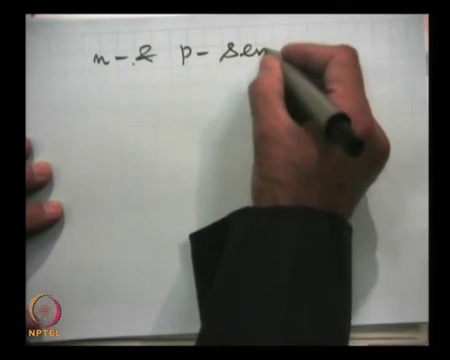 n- & p- Sem
NPTEL